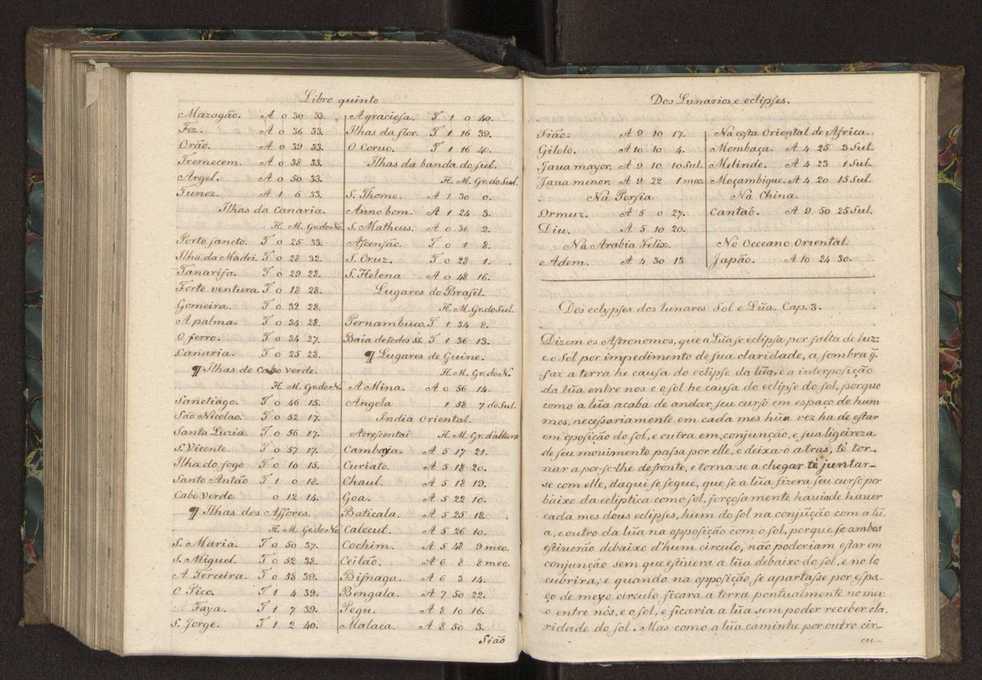 Libro quinto
Mazagão. A 0 30 33.
Fez. A 0 36 33.
Orão. A 0 39 33.
Tremecem. A 0 38 33.
Argel. A 0 50 33.
Tunez. A 1 6 33.
Ilhas da Canaria.
H. M. Gr. do No.
Porto sancto. T 0 25 33.
Ilha da Madei. T 0 28 32.
Tanarifa. T 0 29 28.
Forte ventura T 0 18 28.
Gomeira. T 0 32 28.
A palma. T 0 34 28.
O ferro. T 0 34 27.
Canaria. T 0 25 28.
¶ Ilhas de Cabo verde.
H. M. Gr. do No.
Santiago. T 0 46 15.
São Nicolao. T 0 52 17.
Santa Luzia T 0 56 17.
S. Vicente. T 0 57 17.
Ilha do fogo T 0 10 15.
Santo Antão T 1 0 18.
Cabo Verde 0 12 14.
¶ Ilhas dos Assores.
H. M. Gr. do No
S. Maria. T 0 50 37.
S. Miguel. T 0 52 38.
A Terceira. T 0 58 39.
O Pico. T 1 4 39.
Faya. T 1 7 39.
S. Jorge. T 1 2 40.
A graciosa. T 1 0 40.
Ilhas da flor. T 1 16 39.
O Corvo. T 1 16 40.
Ilhas da banda do sul.
H. M. Gr. do Sul.
S. Thome. A 1 30 0.
Anno bom. A 1 24 3.
S. Matheus. A 0 36 2.
Ascensão. T 0 1 8.
S. Cruz. T 0 28 1.
S. Helena A 0 48 16.
Lugares do Brasil.
H. M. Gr. do Sul.
Pernambuco. T 1 34 8.
Baia de todos S.tc T 1 36 13.
¶ Lugares de Guine.
H. M. Gr. do No.
A Mina. A 0 56 14.
Angela 1 58 7 do Sul.
India Oriental.
Acresentai H. M. Gr. d'altura
Cambaya A 5 17 21.
Curiate. A 5 18 20.
Chaul. A 5 18 19.
Goa. A 5 22 10.
Baticala. A 5 25 18.
Calecut. A 5 26 10.
Cochim. A 5 48 9 meo.
Ceilão. A 6 8 8 meo.
Bisnaga. A 6 3 14.
Bengala. A 7 50 22.
Pegu. A 8 10 16.
Malaca. A 8 50 3.
Sião
Dos Lunarios e eclipses.
Sião. A 9 10 17.
Gilolo. A 10 10 4.
Jaua mayor. A 9 10 10 Sul.
Jaua menor. A 9 22 1 meo.
Na Persia
Ormuz. A 5 0 27.
Diu. A 5 10 20.
Na Arabia Felix.
Adem. A 4 30 13
Na costa Oriental de Africa.
Mombaça. A 4 25 3 Sul.
Melinde. A 4 23 1 Sul.
Moçambique. A 4 20 15 Sul.
Na China.
Cantão. A 9 50 25 Sul.
No Occeano Oriental.
Japão. A 10 24 30.
Dos eclypses dos lunares Sol e Lũa. Cap. 3.
Dizem os Astronomos, que a Lũa se eclipsa por falta de luz
e o Sol por impedimento de sua claridade, a sombra q̃
faz a terra he causa do eclipse da lũa, e a interposição
da lũa entre nos e o sol he causa do eclipse do sol, porque
como a lũa acaba de andar seu curso em espaço de hum
mes, necessariamente em cada mes hũa vez ha de estar
em oposição do sol, e outra em conjuncção, e sua ligeireza
de seu mouimento passa por elle, e deixa-o atras, té tor-
nar a por-se-lhe defronte, e torna-se a chegar té juntar-
se com elle, daqui se segue, que se a lũa fizera seu curso por
baixo da ecliptica como o sol, forçosamente hauia de hauer
cada mes dous eclipses, hum do sol na conjũção com a lũ
a, e outro da lũa na opposição com o sol, porque se ambos
estiuerão debaixo d'hum circulo, não poderiam estar em
conjunção sem que estiuera a lũa debaixo do sol, e no lo
cubrira; e quando na opposição se apartasse por espa-
ço de meyo circulo ficara a terra pontualmente no mei
o entre nós, e o sol, e ficaria a lũa sem poder receber cla
ridade do sol. Mas como a lũa caminhe por outro cir-
cu-